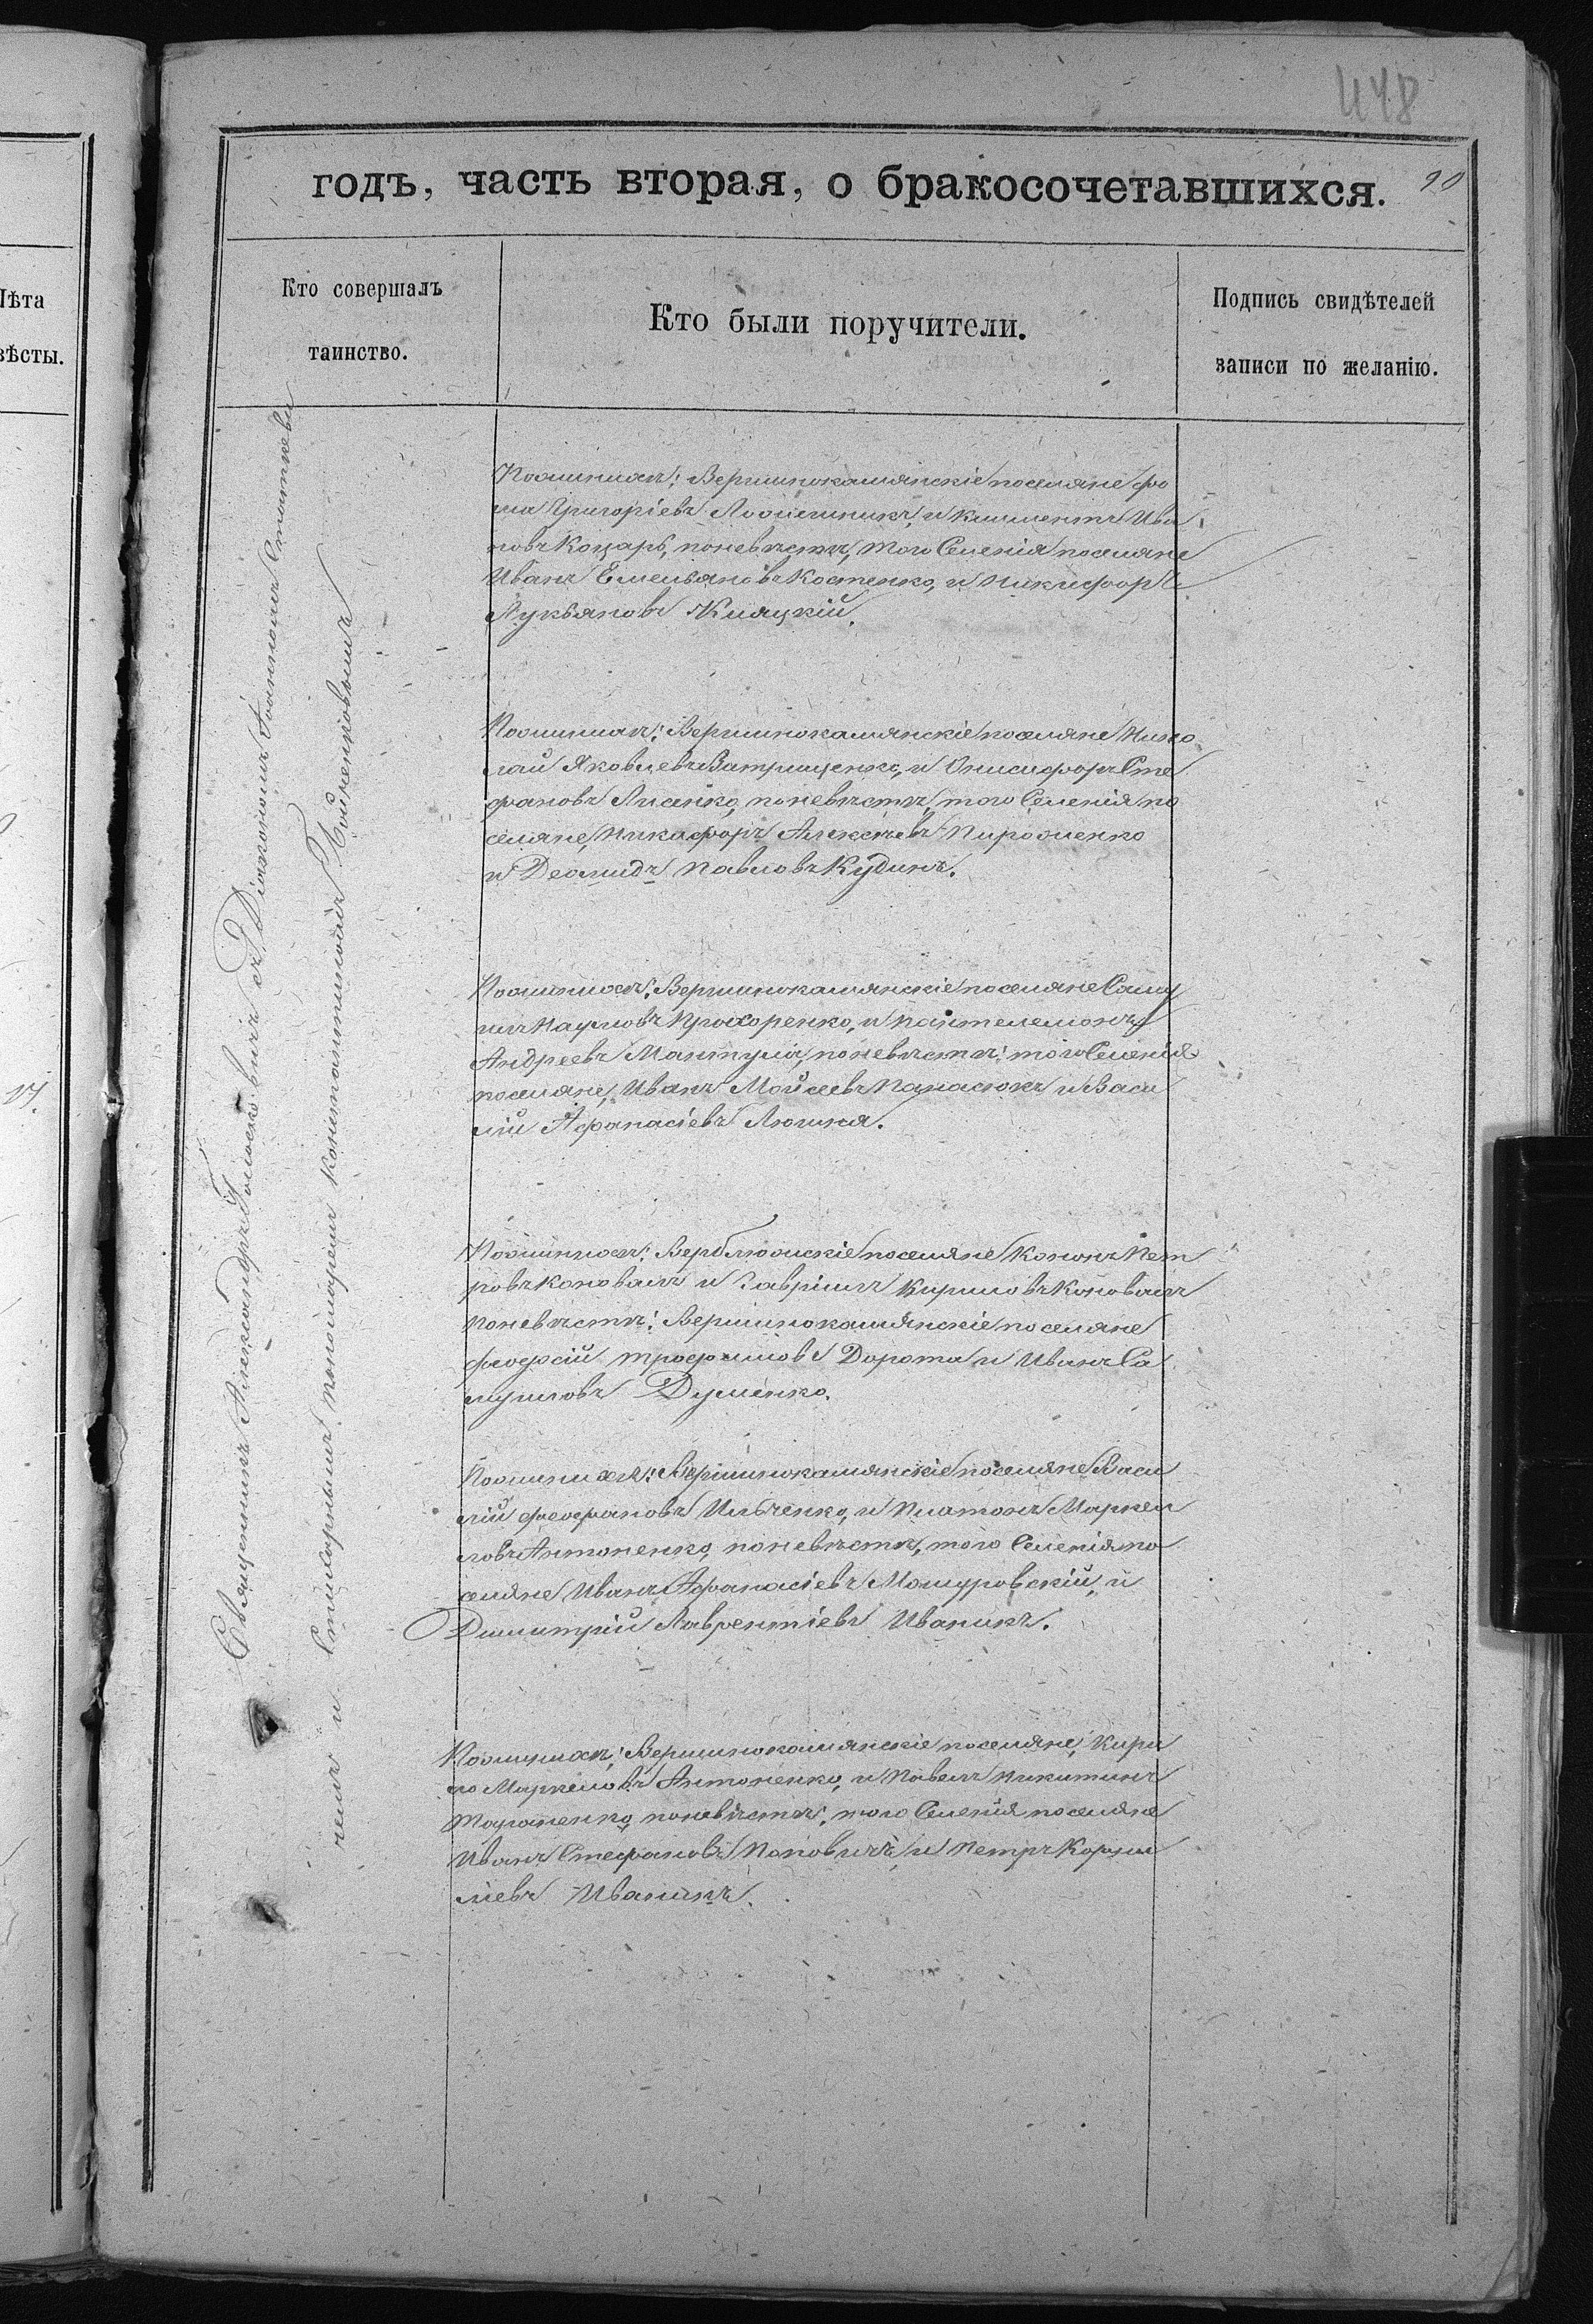 448
годъ, часть вторая, о бракосочетавшихся. 90
Лѣта
вѣсты.
Кто совершалъ
таинство.
Кто были поручители.
Подпись свидѣтелей
записи по желанію.
Священникъ Александръ съ Діакономъ Іоанномъ
чемъ и Стихарнымъ пономаремъ Константиномъ
По женихѣ; Вершинокамянскіе поселяне Ѳо
ма Григоріевъ и Климентъ Ива
новъ Коцарь, по невѣстѣ, того Селенія поселяне
Иванъ Емельяновъ Костенко, и Никифоръ
Лукьяновъ Кляцкій.
По женихѣ; Вершинокамянскіе поселяне Нико
лай Яковлевъ Ватрищенко, и Онисифоръ Сте
фановъ Лисенко, по невѣстѣ, того Селенія по
селяне, Никифоръ Алексѣевъ Пироженко
и Деомидъ Павловъ Кудинъ.
По женихѣ; Вершинокамянскіе поселяне Саму
илъ Наумовъ Прохоренко, и Пантелемонъ
Андреевъ Мантула, по невѣстѣ; того Селенія
поселяне, Иванъ Мойсеевъ Панасюкъ и Васи
лій Афанасіевъ Люлька.
По женихѣ; Верблюжскіе поселяне Кононъ Пет
ровъ Коновалъ и Гавріилъ Кириловъ Коновалъ
по невѣстѣ; Вершинокамянскіе поселяне
Ѳеодосій Трофимовъ Дорота и Иванъ Са
муиловъ Думенко.
По женихѣ; Вершинокамянскіе поселяне Васи
лій Феофановъ Ильченко, и Платонъ Маркел
ловъ Антоненко, по невѣстѣ, того Селенія по
селяне Иванъ Афанасіевъ Мошуровскій, и
Димитрій Лаврентіевъ Иваникъ.
По женихѣ; Вершинокамянскіе поселяне, Кири
ло Маркеловъ Антоненко, и Павелъ Никитинъ
Тараненко, по невѣстѣ; того Селенія поселяне
Иванъ Стефановъ Поповичъ, и Петръ Корни
ліевъ Иваникъ.